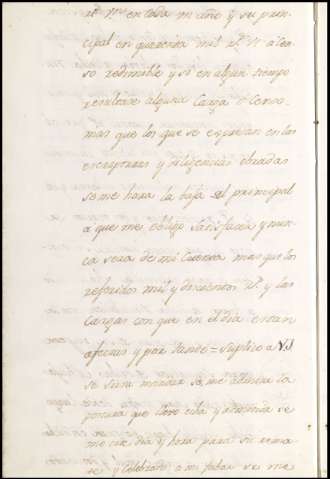 rs. Vn. en cada un año y su prin-
cipal en quarenta mil rs. Vn. a Cen-
so redimible y si en algun tiempo
resultare alguna Carga o Censo
mas que los que se expresan en las
escrituras y diligencias obradas
se me hara la baja del principal
a que me obligo Satisfacer y nun-
ca sera de mi Cuenta mas que los
referidos mil y docientos rs. y las
Cargas con que en el dia estan
afectas y por tanto = Suplico a V.S.
se sirva mandar se me admita la
postura que llevo echa y
me cite dia y hora para su rema-
te y Celebrado a mi fabor se me